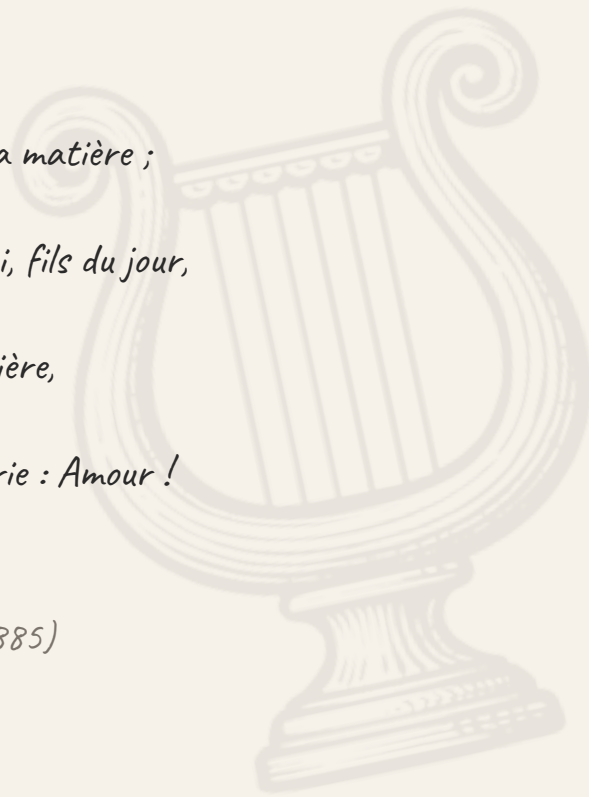 a matière ;
i, fils du jour,
ière,
rie : Amour !
885)